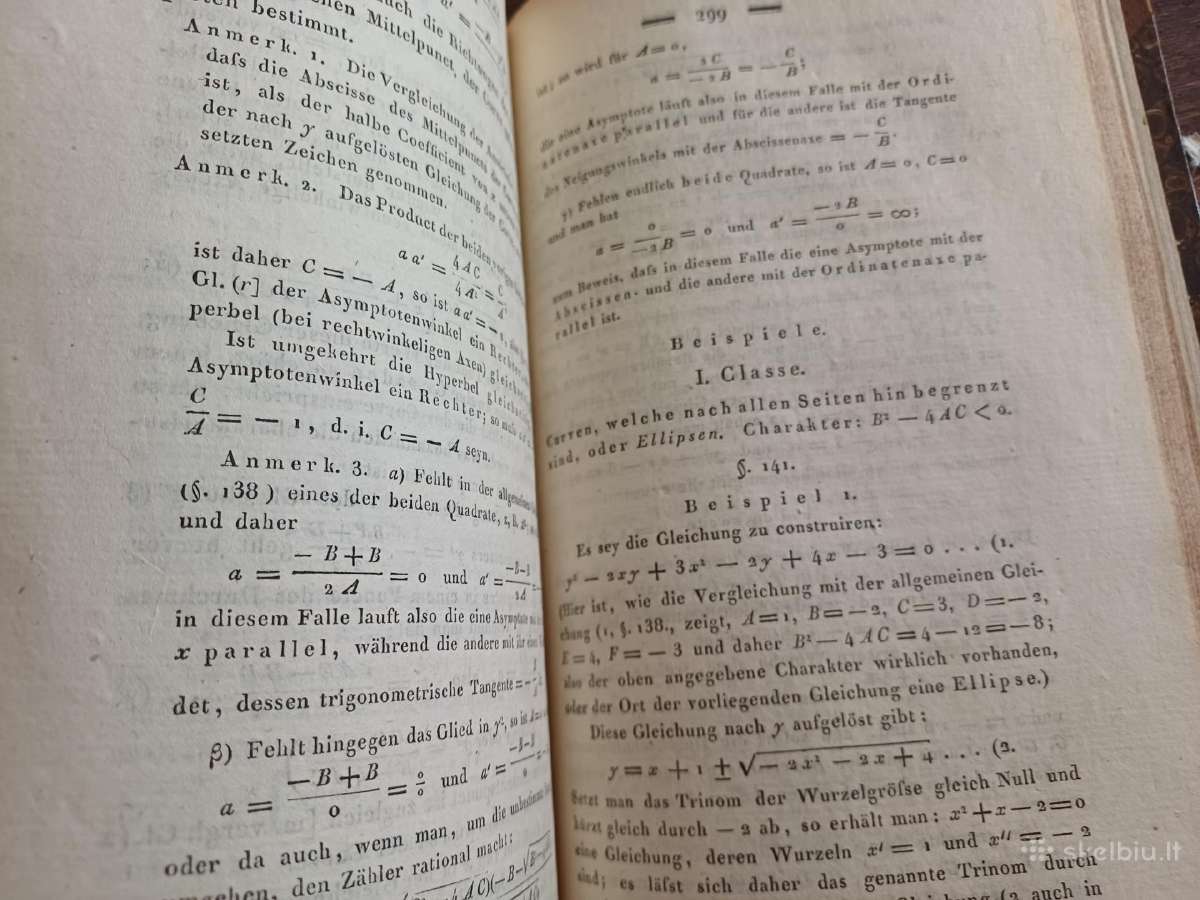 auch die Richtung
chen Mittelpunct, der
ten bestimmt.
Anmerk. 1. Die Vergleichung der
daſs die Abscisse des Mittelpuncts
ist, als der halbe Coefficient von x
der nach y aufgelösten Gleichung der
setzten Zeichen genommen.
Anmerk. 2. Das Product der beiden
a a' = 4AC / 4A² = C/A
ist daher C = — A, so ist a a' = — 1,
Gl. (r] der Asymptotenwinkel ein Rechter
perbel (bei rechtwinkeligen Axen)
Ist umgekehrt die Hyperbel
Asymptotenwinkel ein Rechter; so muſs
C/A = — 1, d. i. C = — A seyn.
Anmerk. 3. a) Fehlt in der allgemeinen
(§. 138) eines der beiden Quadrate,
und daher
a = (— B + B) / 2 A = 0 und a' =
in diesem Falle lauft also die eine Asymptote
x parallel, während die andere mit
det, dessen trigonometrische Tangente =
β) Fehlt hingegen das Glied in y², so ist
a = (— B + B) / 0 = 0/0 und a' =
oder da auch, wenn man, um die
den Zähler rational macht:
— 299 —
so wird für A = 0,
a = 2 C / — 2 B = — C/B;
die eine Asymptote läuft also in diesem Falle mit der Ordi-
natenaxe parallel und für die andere ist die Tangente
des Neigungswinkels mit der Abscissenaxe = — C/B.
γ) Fehlen endlich beide Quadrate, so ist A = 0, C = 0
und man hat
a = 0 / — 2 B = 0 und a' = — 2 B / 0 = ∞;
zum Beweis, daſs in diesem Falle die eine Asymptote mit der
Abscissen- und die andere mit der Ordinatenaxe pa-
rallel ist.
Beispiele.
I. Classe.
Curven, welche nach allen Seiten hin begrenzt
sind, oder Ellipsen. Charakter: B² — 4 AC < 0.
§. 141.
Beispiel 1.
Es sey die Gleichung zu construiren:
y² — 2xy + 3x² — 2y + 4x — 3 = 0 . . . (1.
(Hier ist, wie die Vergleichung mit der allgemeinen Glei-
chung (1, §. 138., zeigt, A = 1, B = — 2, C = 3, D = — 2,
E = 4, F = — 3 und daher B² — 4 AC = 4 — 12 = — 8;
also der oben angegebene Charakter wirklich vorhanden,
oder der Ort der vorliegenden Gleichung eine Ellipse.)
Diese Gleichung nach y aufgelöst gibt:
y = x + 1 ± √— 2x² — 2x + 4 . . . (2.
Setzt man das Trinom der Wurzelgröſse gleich Null und
kürzt gleich durch — 2 ab, so erhält man: x² + x — 2 = 0
eine Gleichung, deren Wurzeln x' = 1 und x'' = — 2
sind; es läſst sich daher das genannte Trinom durch
(2 auch in
skelbiu.lt